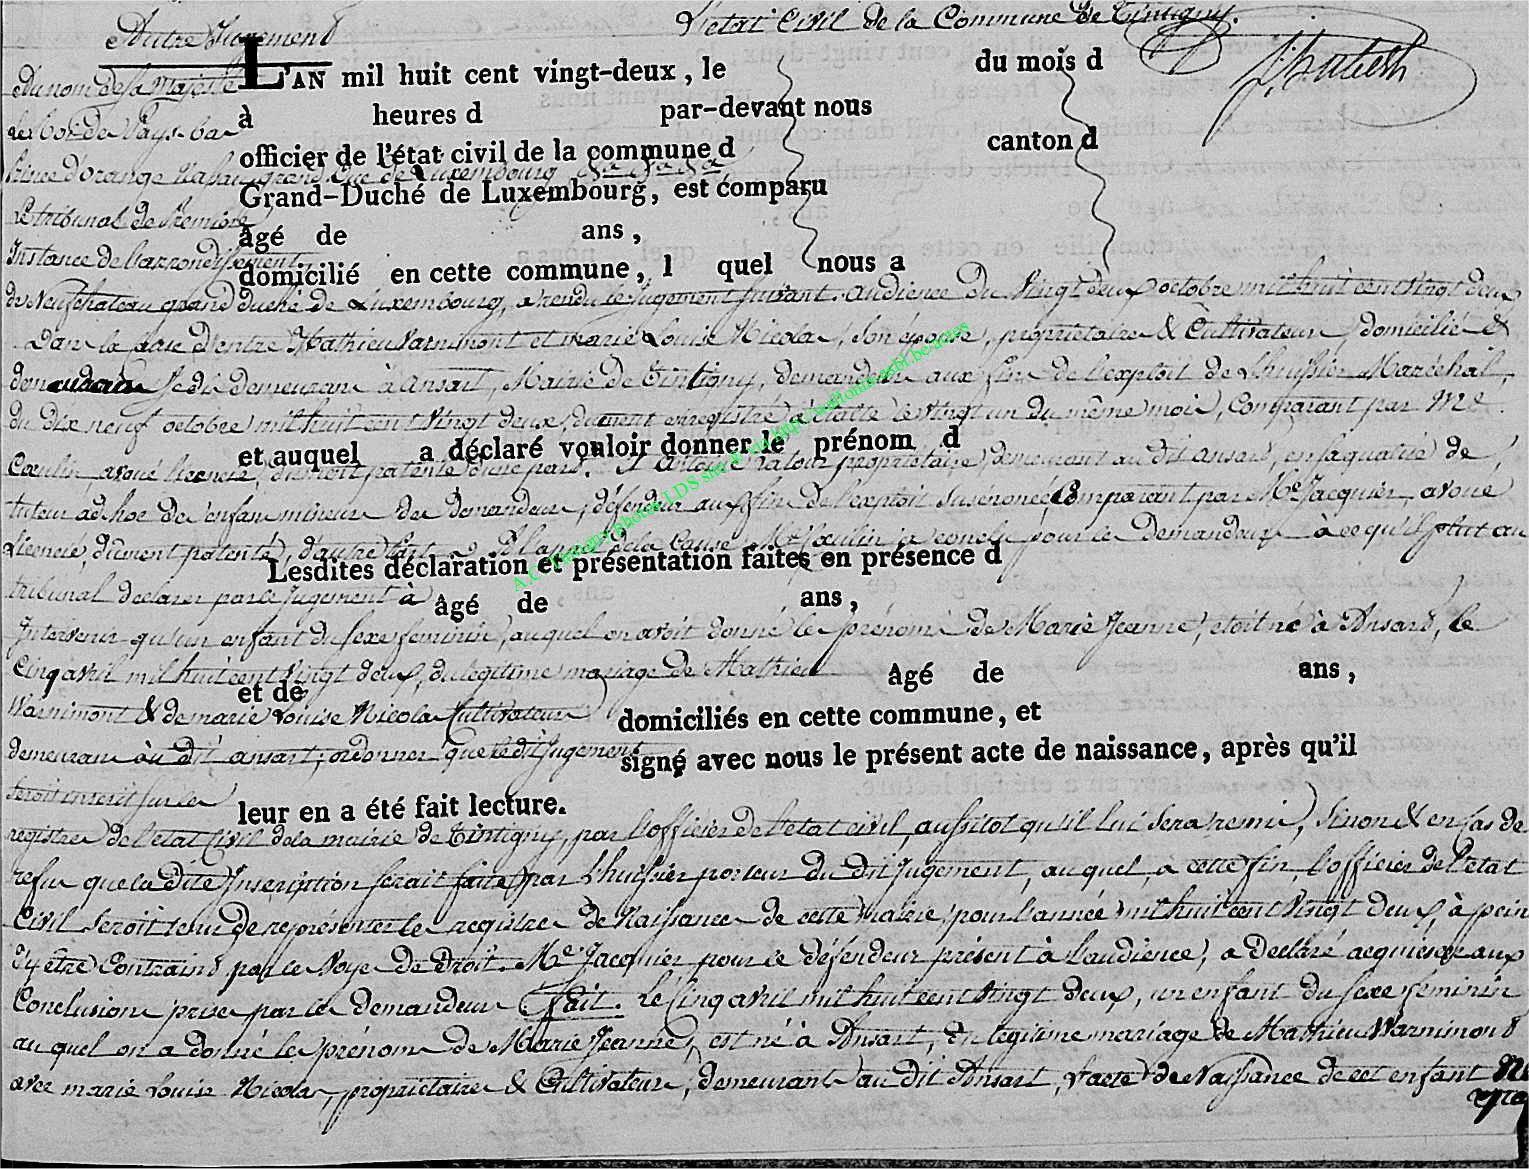 L'etat Civil de la Commune de Tintigny.
Autre Jugement
L'AN mil huit cent vingt-deux, le du mois d
Au nom de sa Majesté
à heures d par-devant nous
le Roi des Pays-bas
officier de l'état civil de la commune d canton d
Prince d'orange Nassau grand Duc de Luxembourg &a &a &a
Grand-Duché de Luxembourg, est comparu
Le tribunal de Premiere
âgé de ans,
Instance de l'arrondissement
domicilié en cette commune, l quel nous a
de Neufchateau grand duché de Luxembourg, a rendu le Jugement suivant. audience du vingt deux octobre mil huit cent vingt deux
Dans la cause d'entre Mathieu Warnimont et marie Louise Nicolas, son épouse, propriétaires & Cultivateurs, domiciliés &
demeurant à ansart, Mairie de Tintigny, demandeurs aux fins de l'exploit de L'huissier Maréchal,
du dix neuf octobre mil huit cent vingt deux, dument enregistré à le vingt un du même mois, Comparant par Me
et auquel a déclaré vouloir donner le prénom d
avoué licencié, dument patenté d'une part. propriétaire, demeurant au dit ansart, en sa qualité de
tuteur ad hoc de enfant mineur des demandeurs, défendeur aux fins de l'exploit susénoncé, Comparant par Me Jacquier avoué
Licencié, dûment patenté, d'autre part a conclu pour les demandeurs à ce qu'il plut au
Lesdites déclaration et présentation faites en présence d
tribunal declarer par le Jugement à
âgé de ans,
Intervenir qu'un enfant du sexe feminin, auquel on avoit donné les prénoms de Marie Jeanne, étoit né à Ansart, le
Cinq avril mil huit cent vingt deux, du légitime mariage de Mathieu
âgé de ans,
et de
Warnimont & de marie Louise Nicolas Cultivateurs
domiciliés en cette commune, et
demeurans au dit ansart, ordonner que le dit Jugement
signé avec nous le présent acte de naissance, après qu'il
seroit inscrit sur les
leur en a été fait lecture.
registres de l'etat Civil de la mairie de Tintigny, par l'officier de l'etat civil, aussitot qu'il lui sera remis, Sinon & en cas de
refus que la dite Inscription serait faite par L'huissier porteur du dit Jugement, auquel, a cette fin, l'officier de l'etat
Civil seroit tenu de représenter les registres de Naissances de cette mairie, pour l'année mil huit cent vingt deux, à peine
d'y etre Contraint par les Voyes de Droit. Me Jacquier pour le défendeur présent à l'audience, a declaré acquiescer aux
Conclusions prises par les demandeurs fait. Le Cinq avril mil huit cent vingt deux, un enfant du sexe feminin
auquel on a donné les prénoms de Marie Jeanne, est né à Ansart, du légitime mariage de Mathieu Warnimont
avec marie Louise Nicolas, propriétaires & Cultivateurs, demeurant au dit Ansart, l'acte de Naissance de cet enfant